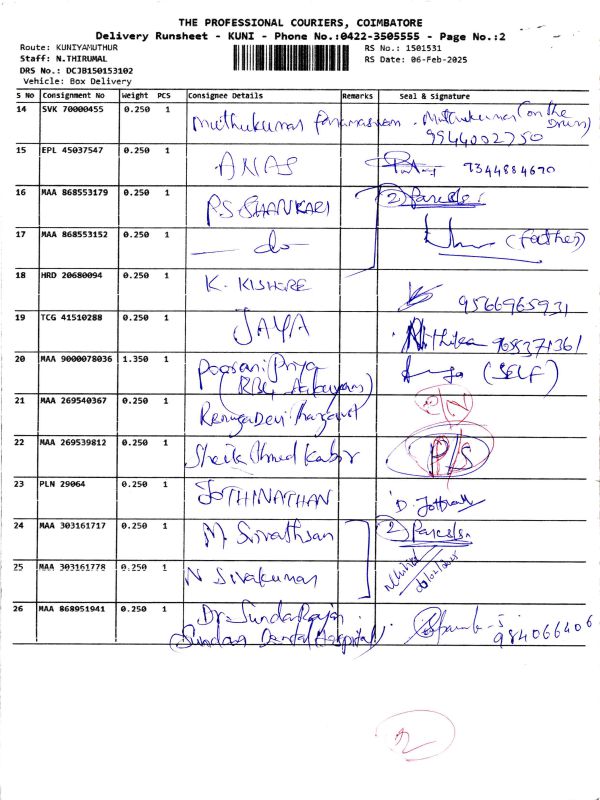 THE PROFESSIONAL COURIERS, COIMBATORE
Delivery Runsheet - KUNI - Phone No.:0422-3505555 - Page No.:2
Route: KUNIYAMUTHUR
RS No.: 1501531
Staff: N.THIRUMAL
RS Date: 06-Feb-2025
DRS No.: DCJB150153102
Vehicle: Box Delivery
S No Consignment No Weight PCS Consignee Details Remarks Seal & Signature
14 SVK 70000455 0.250 1 Muthukumar . Muthukumar (on the
9944002750
15 EPL 45037547 0.250 1 ANAS 7344884670
16 MAA 868553179 0.250 1 P.S SHANKARI (2) Parcels.
17 MAA 868553152 0.250 1 — do — (Father)
18 HRD 20680094 0.250 1 K. KISHORE 9566965931
19 TCG 41510288 0.250 1 JAYA Nithika 9685371361
20 MAA 9000078036 1.350 1 Poorani Priya (SELF)
(RBG
21 MAA 269540367 0.250 1 RenugaDevi
22 MAA 269539812 0.250 1 Sheik Ahmed Kabir P/S
23 PLN 29064 0.250 1 JOTHINATHAN D.
24 MAA 303161717 0.250 1 M Srivathsan (2) Parcels.
25 MAA 303161778 0.250 1 N Sivakumar 06/02/2025
26 MAA 868951941 0.250 1 Dr. Sundarrajan
Sundara Dental Hospital 984066406
2